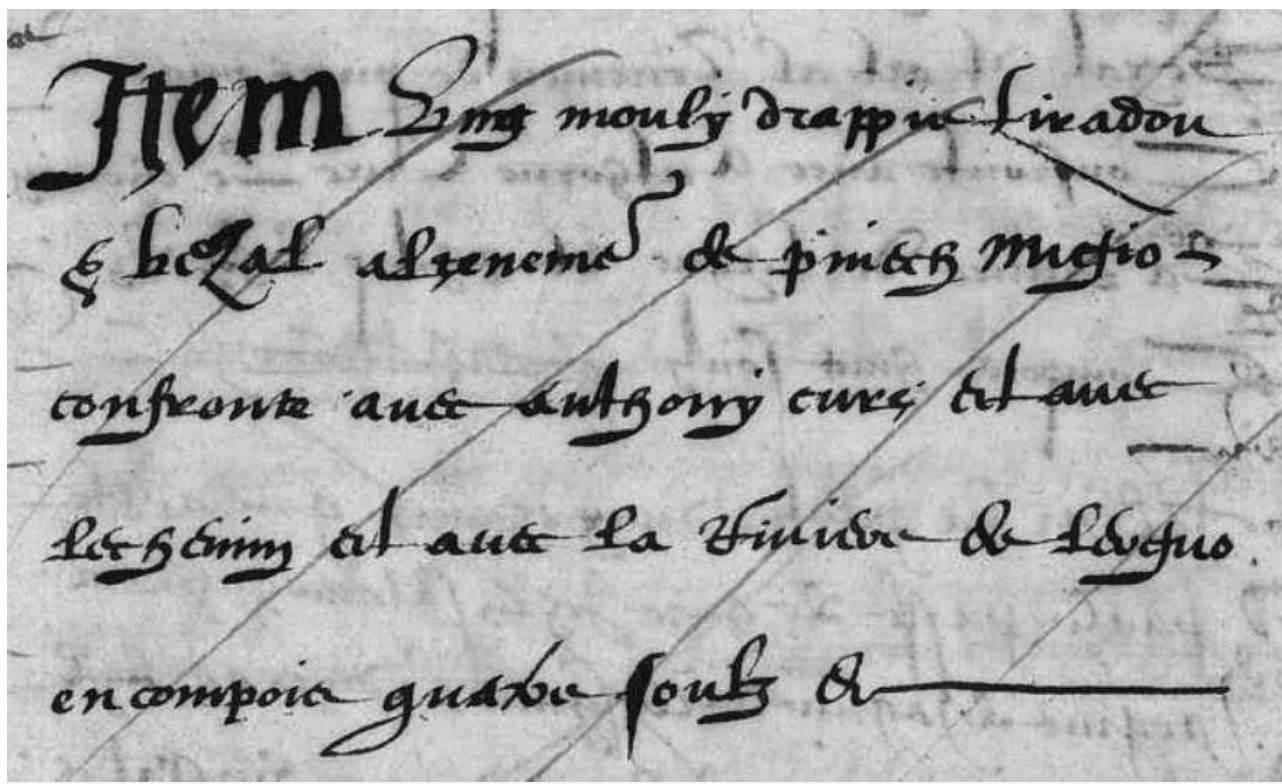 Item Ung mouly drappie tiradou
& bezal al teneme de piuech Migio
confronte avec anthony cure et avec
lechemin et avec la Riviere de lerguo
en compois quatre soulz d